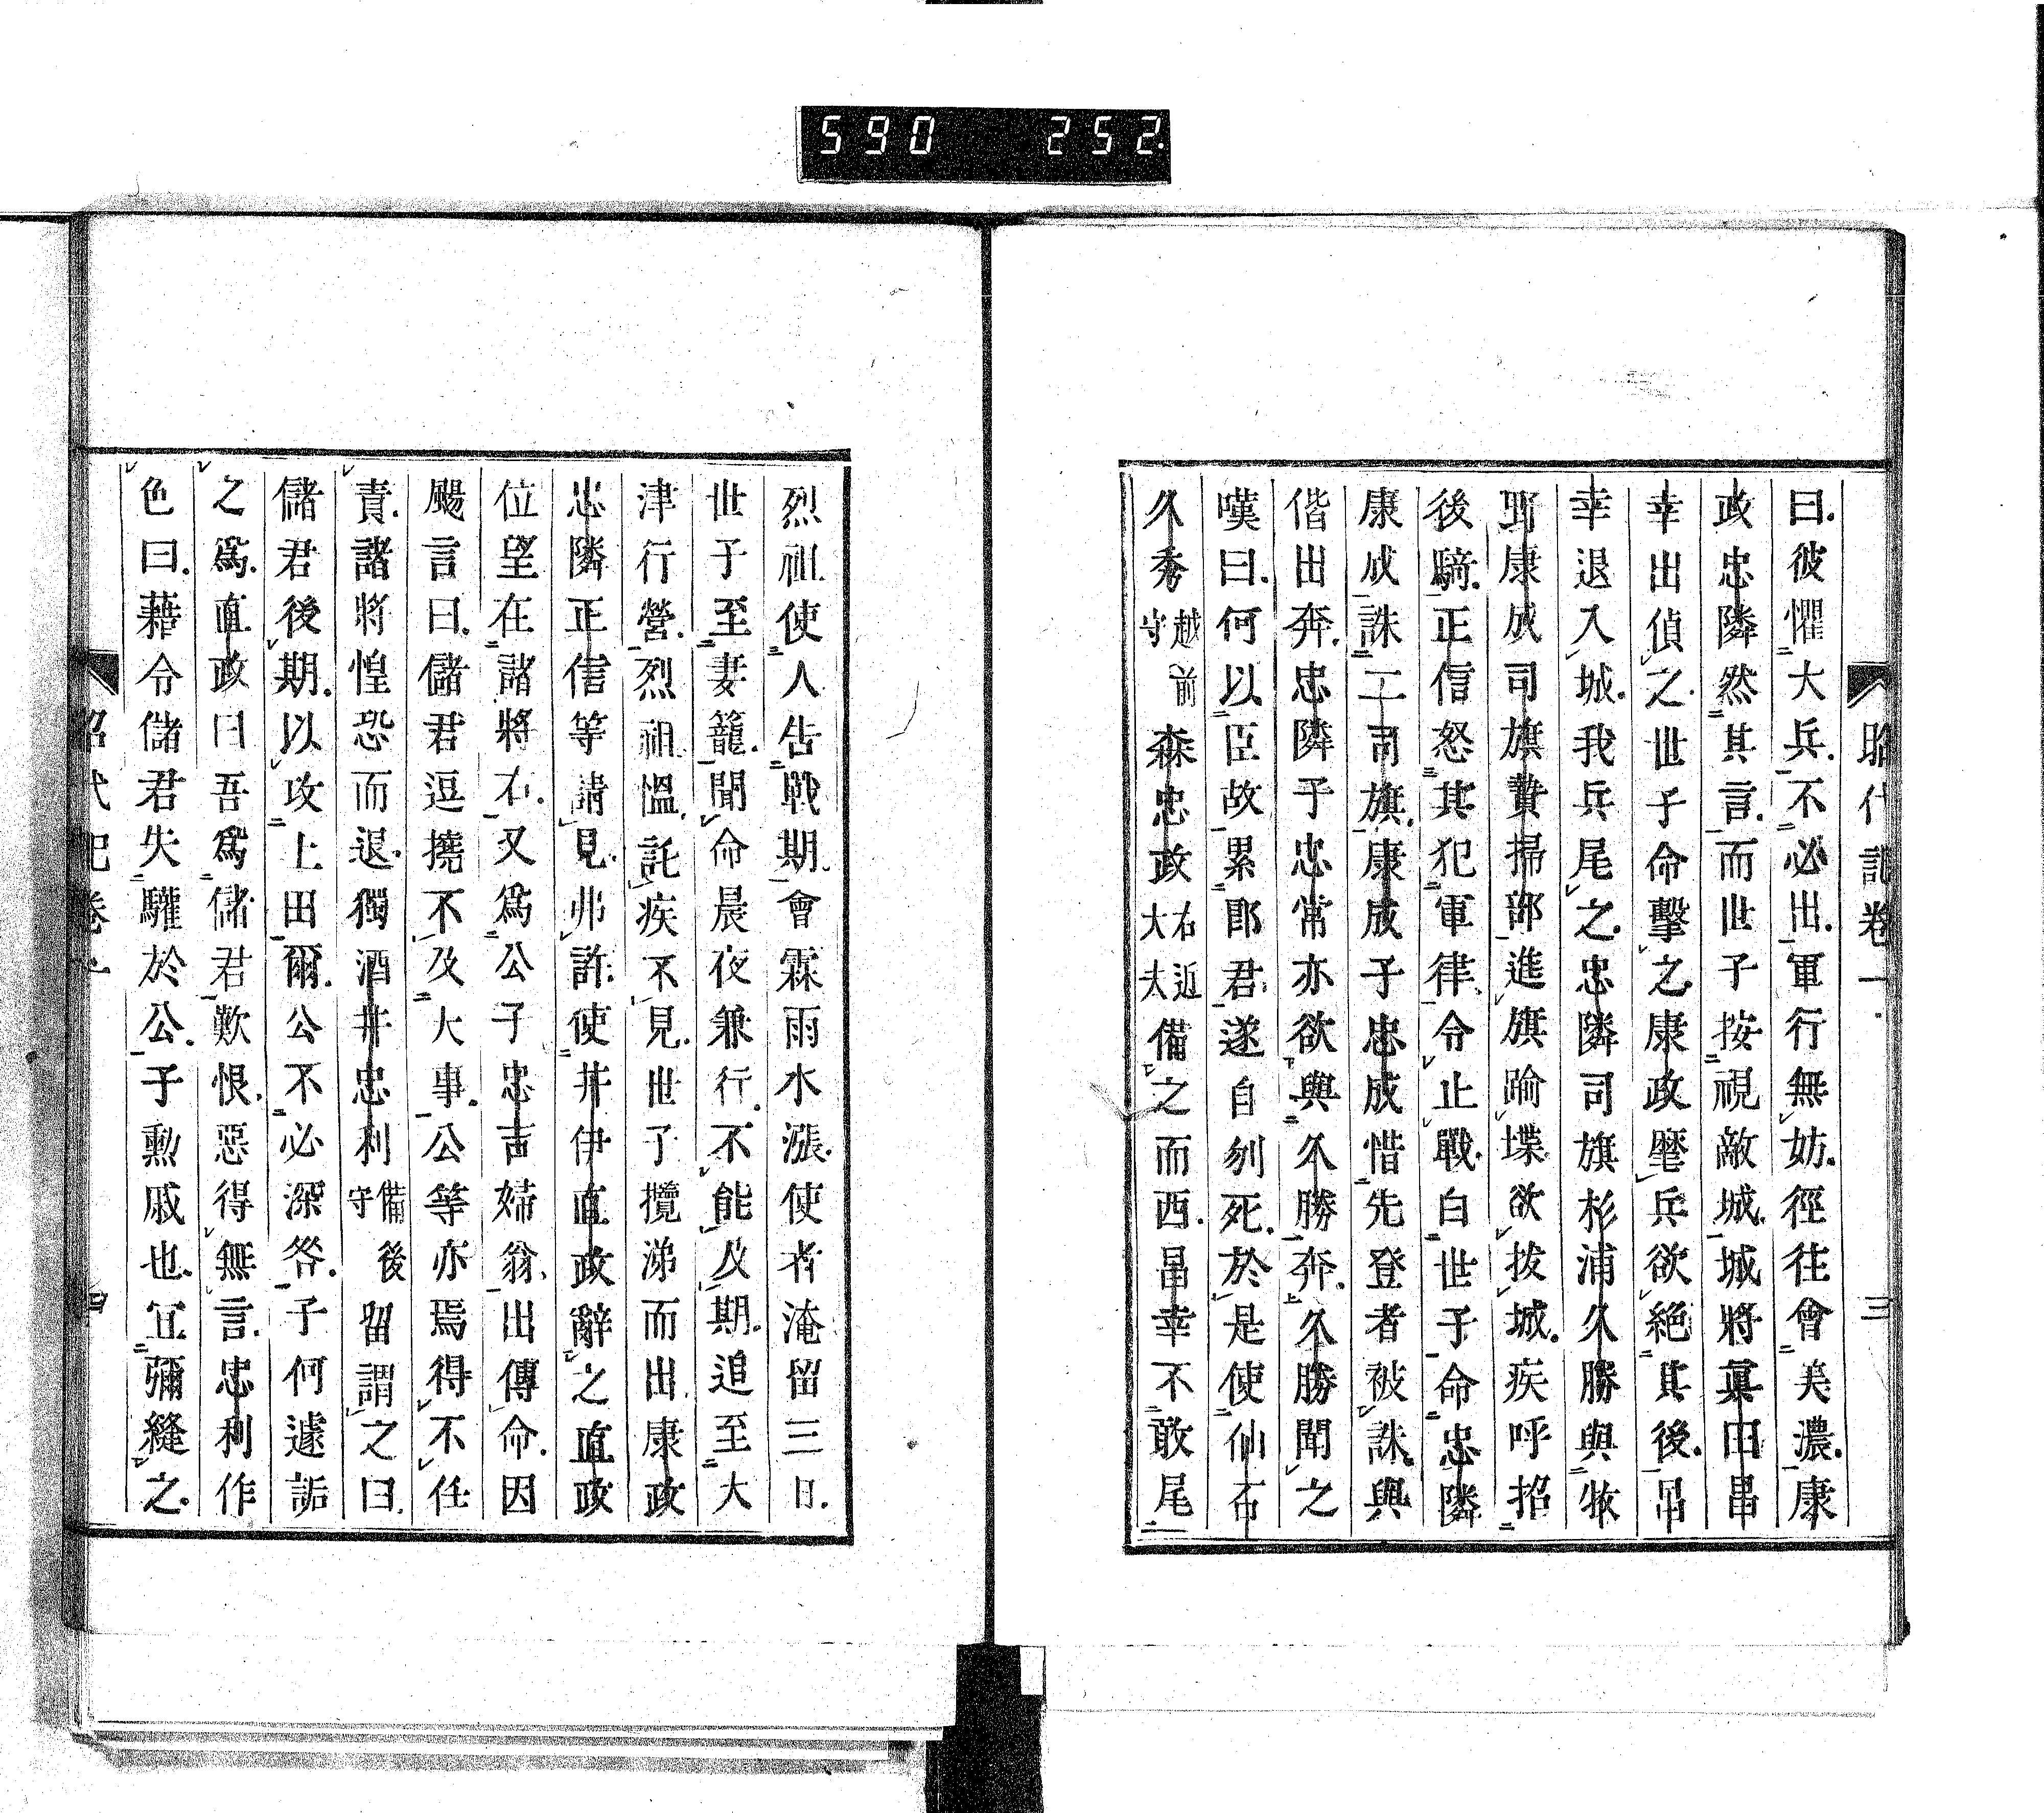 590 252.
昭代記卷一 三
曰彼懼大兵不必出軍行無妨徑往會美濃康
政忠隣然其言而世子按視敵城城將眞田昌
幸出偵之世子命擊之康政麾兵欲絕其後昌
幸退入城我兵尾之忠隣司旗杉浦久勝與牧
野康成司旗贄掃部進旗踰堞欲拔城疾呼招
後騎正信怒其犯軍律令止戰白世子命忠隣
康成誅二司旗康成子忠成惜先登者被誅與
偕出奔忠隣子忠常亦欲與久勝奔久勝聞之
嘆曰何以臣故累郎君遂自刎死於是使仙石
久秀越前守森忠政右近大夫備之而西昌幸不敢尾
烈祖使人告戰期會霖雨水漲使者淹留三日
世子至妻籠聞命晨夜兼行不能及期追至大
津行營烈祖慍託疾不見世子攬涕而出康政
忠隣正信等請見弗許使井伊直政辭之直政
位望在諸將右又爲公子忠吉婦翁出傳命因
颺言曰儲君逗撓不及大事公等亦焉得不任
責諸將惶恐而退獨酒井忠利備後守留謂之曰
儲君後期以攻上田爾公不必深咎子何遽詬
之爲直政曰吾爲儲君歎恨惡得無言忠利作
色曰藉令儲君失驩於公子勳戚也宜彌縫之
昭代記卷一 四